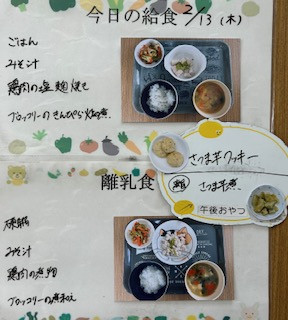 今日の給食 2/13 (木)
ごはん
みそ汁
鶏肉の塩麹焼き
ブロッコリーの
さつま芋クッキー
離 さつま芋煮
午後おやつ
離乳食
みそ汁
鶏肉の煮物
ブロッコリーの煮和え